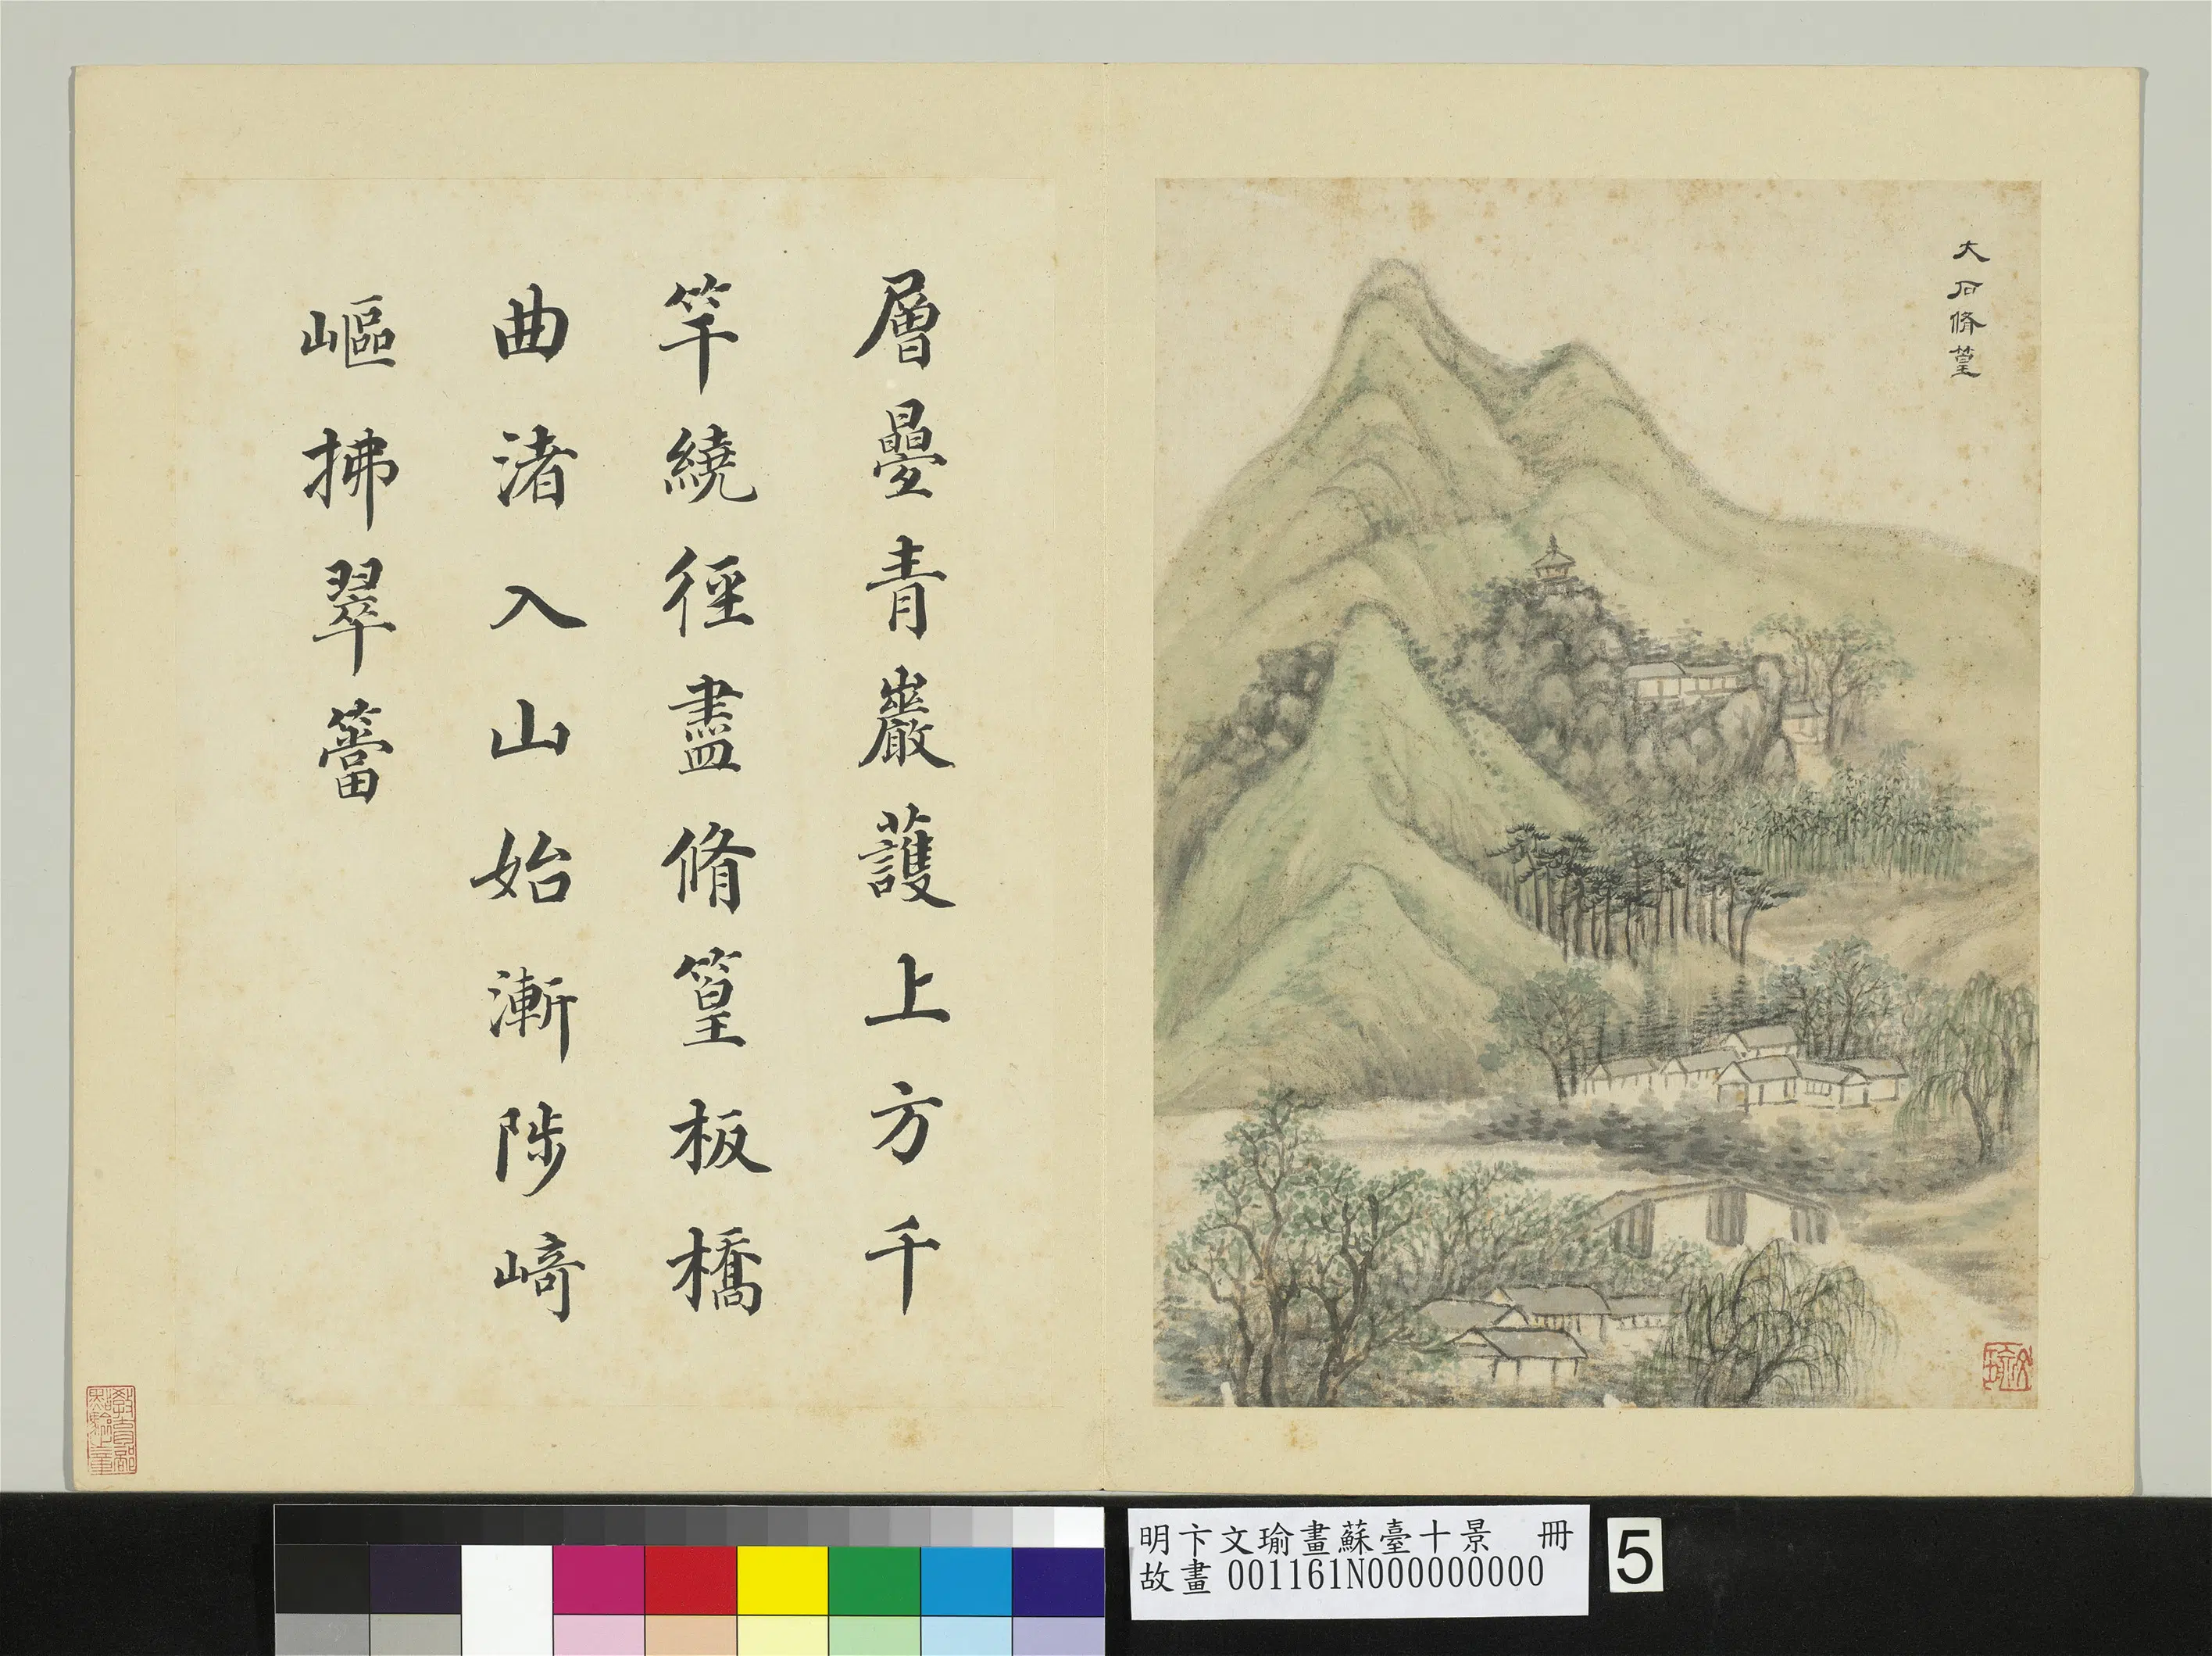 大石脩篁
層曡青巖護上方千
竿繞徑盡脩篁板橋
曲渚入山始漸陟崎
嶇拂翠簹
文瑜
教育部點驗之章
明卞文瑜畫蘇臺十景　冊
故畫 001161N000000000
5